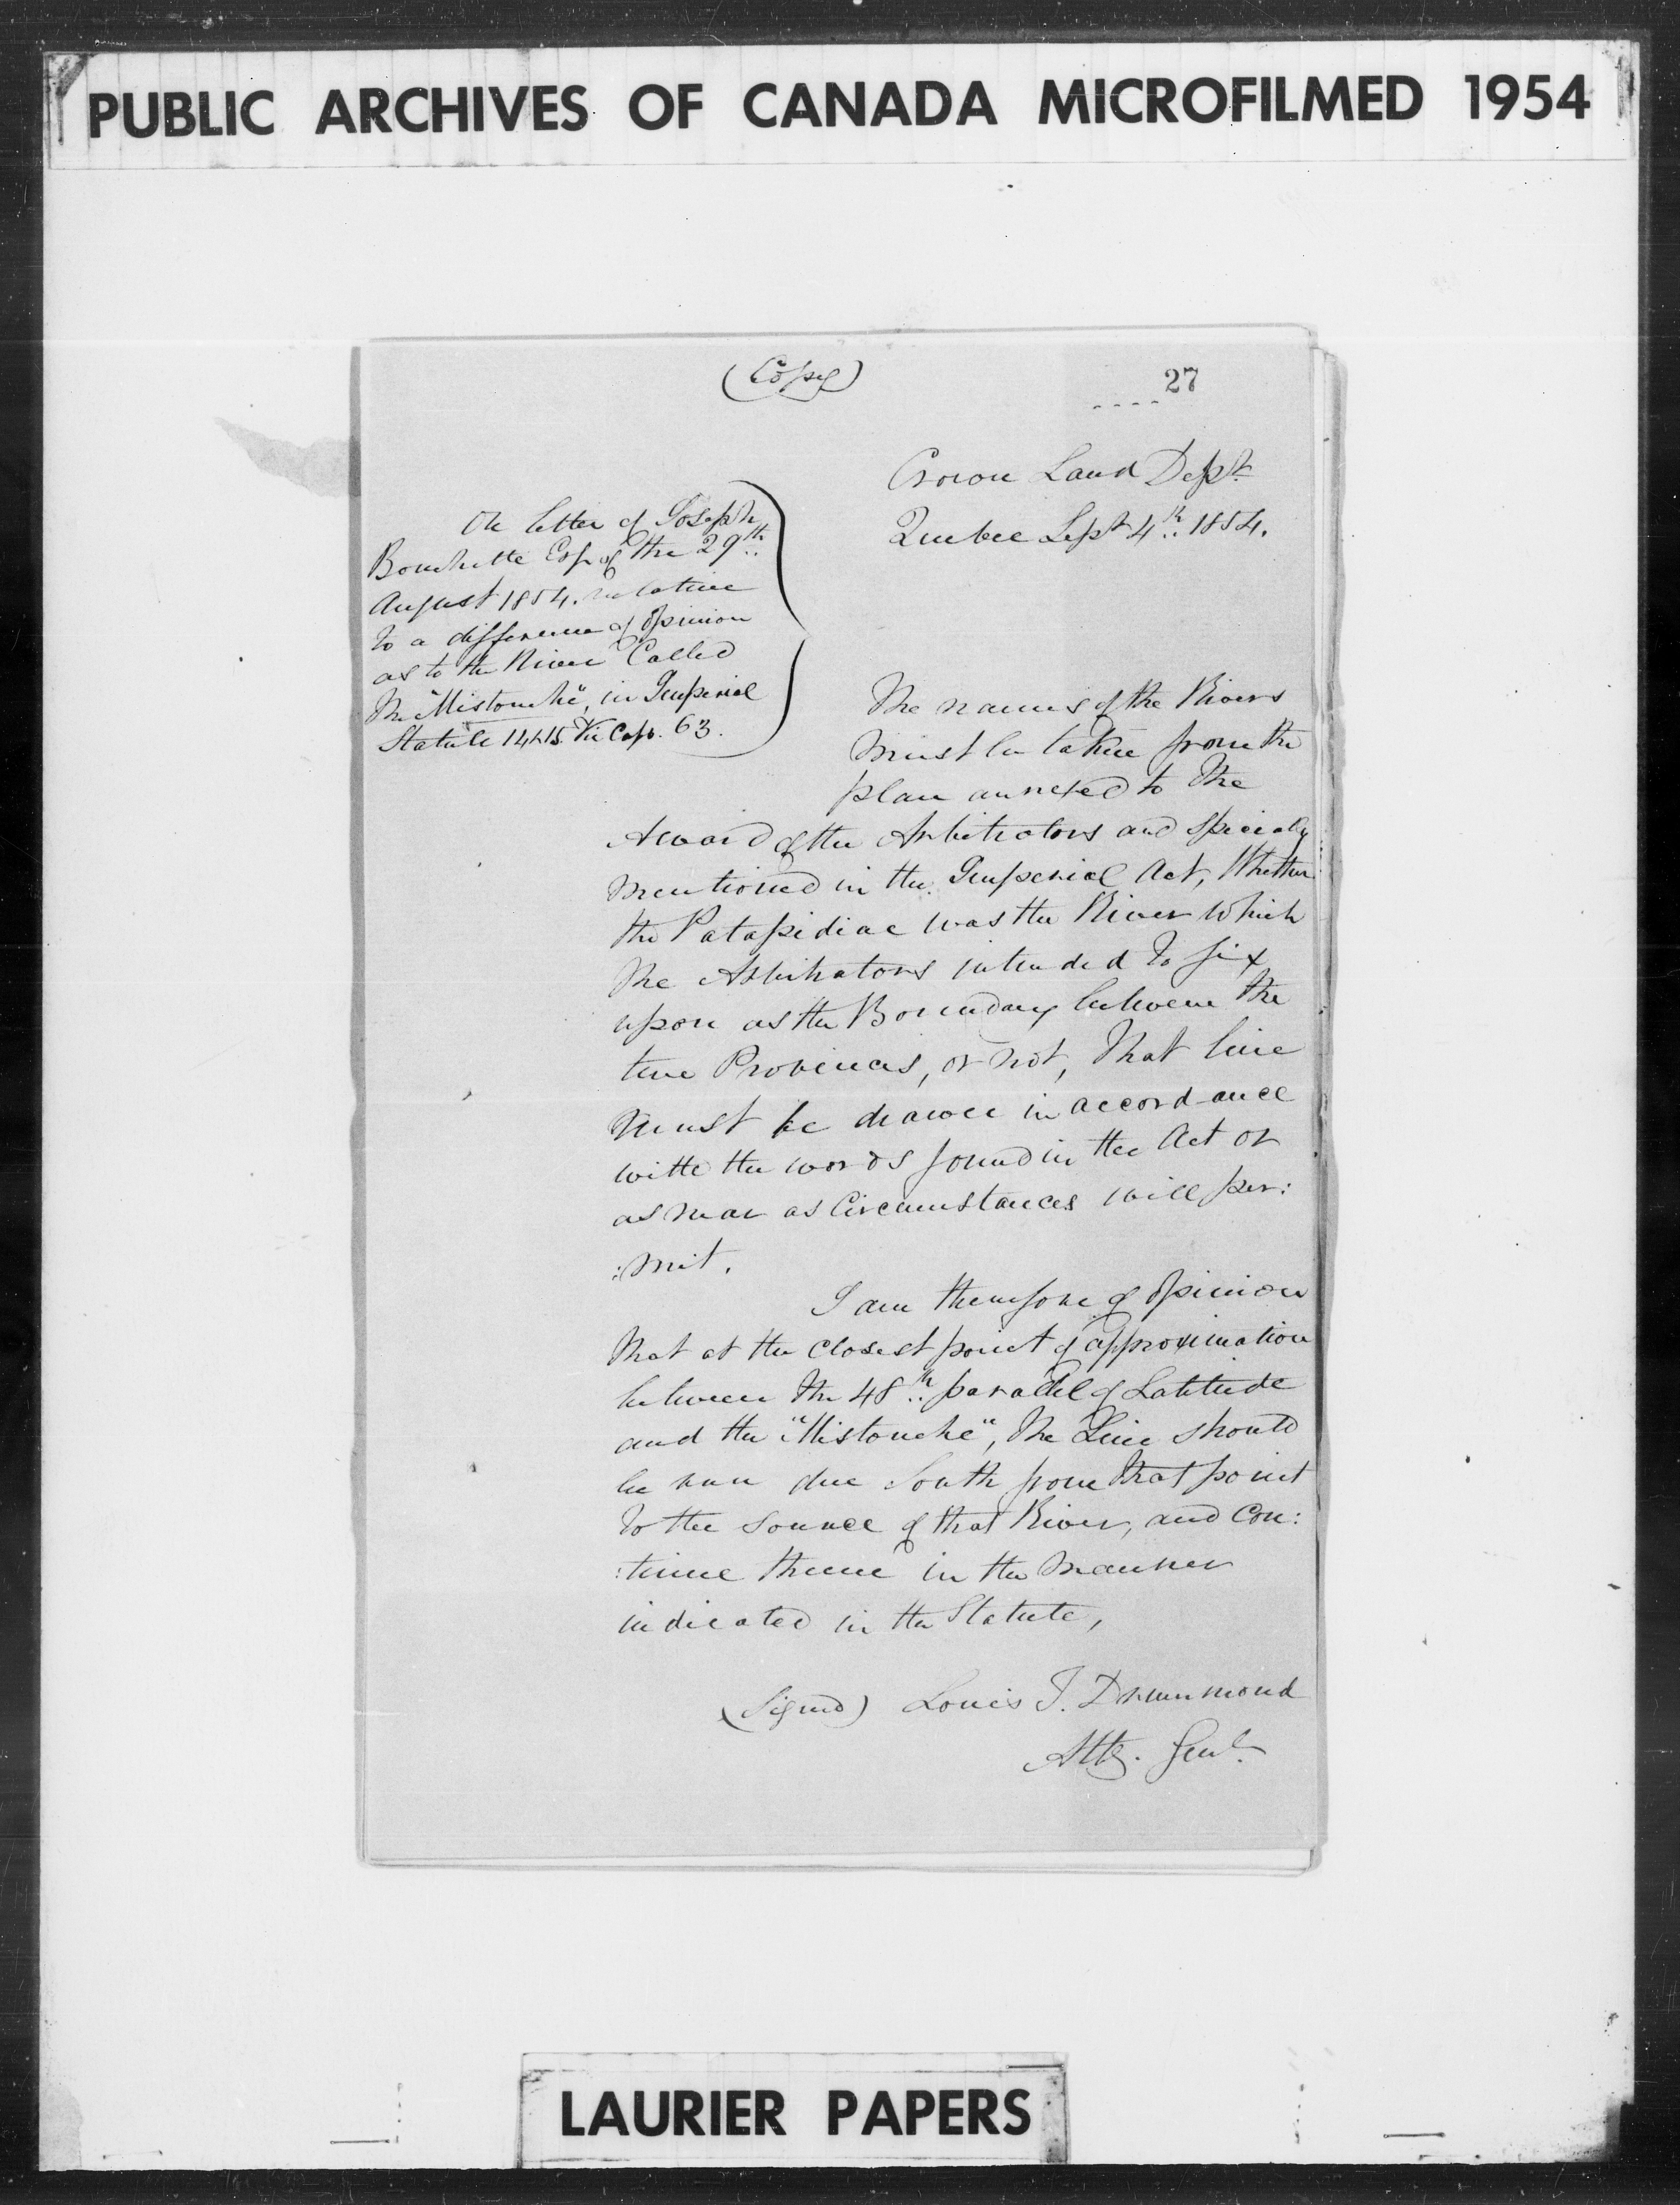 PUBLIC ARCHIVES OF CANADA MICROFILMED 1954
(Copy)
27
Crown Land Dept
Quebec Sept 4th 1854.
On letter of Joseph
Bouchette Esq of the 29th
August 1854. relative
to a difference of Opinion
as to the River Called
The "Mistouche", in Imperial
Statute 14&15. Vic Cap. 63.
The names of the Rivers
must be taken from the
plan annexed to the
Award of the Arbitrators and specially
mentioned in the Imperial Act, Whether
the Patapediac was the River which
the Arbitrators intended to fix
upon as the Boundary between the
two Provinces, or not, That line
must be drawn in accordance
with the words found in the Act or
as near as Circumstances will per:
:mit.
I am therefore of Opinion
that at the closest point of approximation
between the 48th parallel of Latitude
and the "Mistouche", The Line should
be run due South from that point
to the Source of that River, and Con:
:tinue thence in the manner
indicated in the Statute,
(Signed) Louis T. Drummond
Atty. Genl.
LAURIER PAPERS